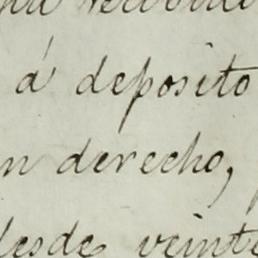 á deposito
n derecho,
desde veinte